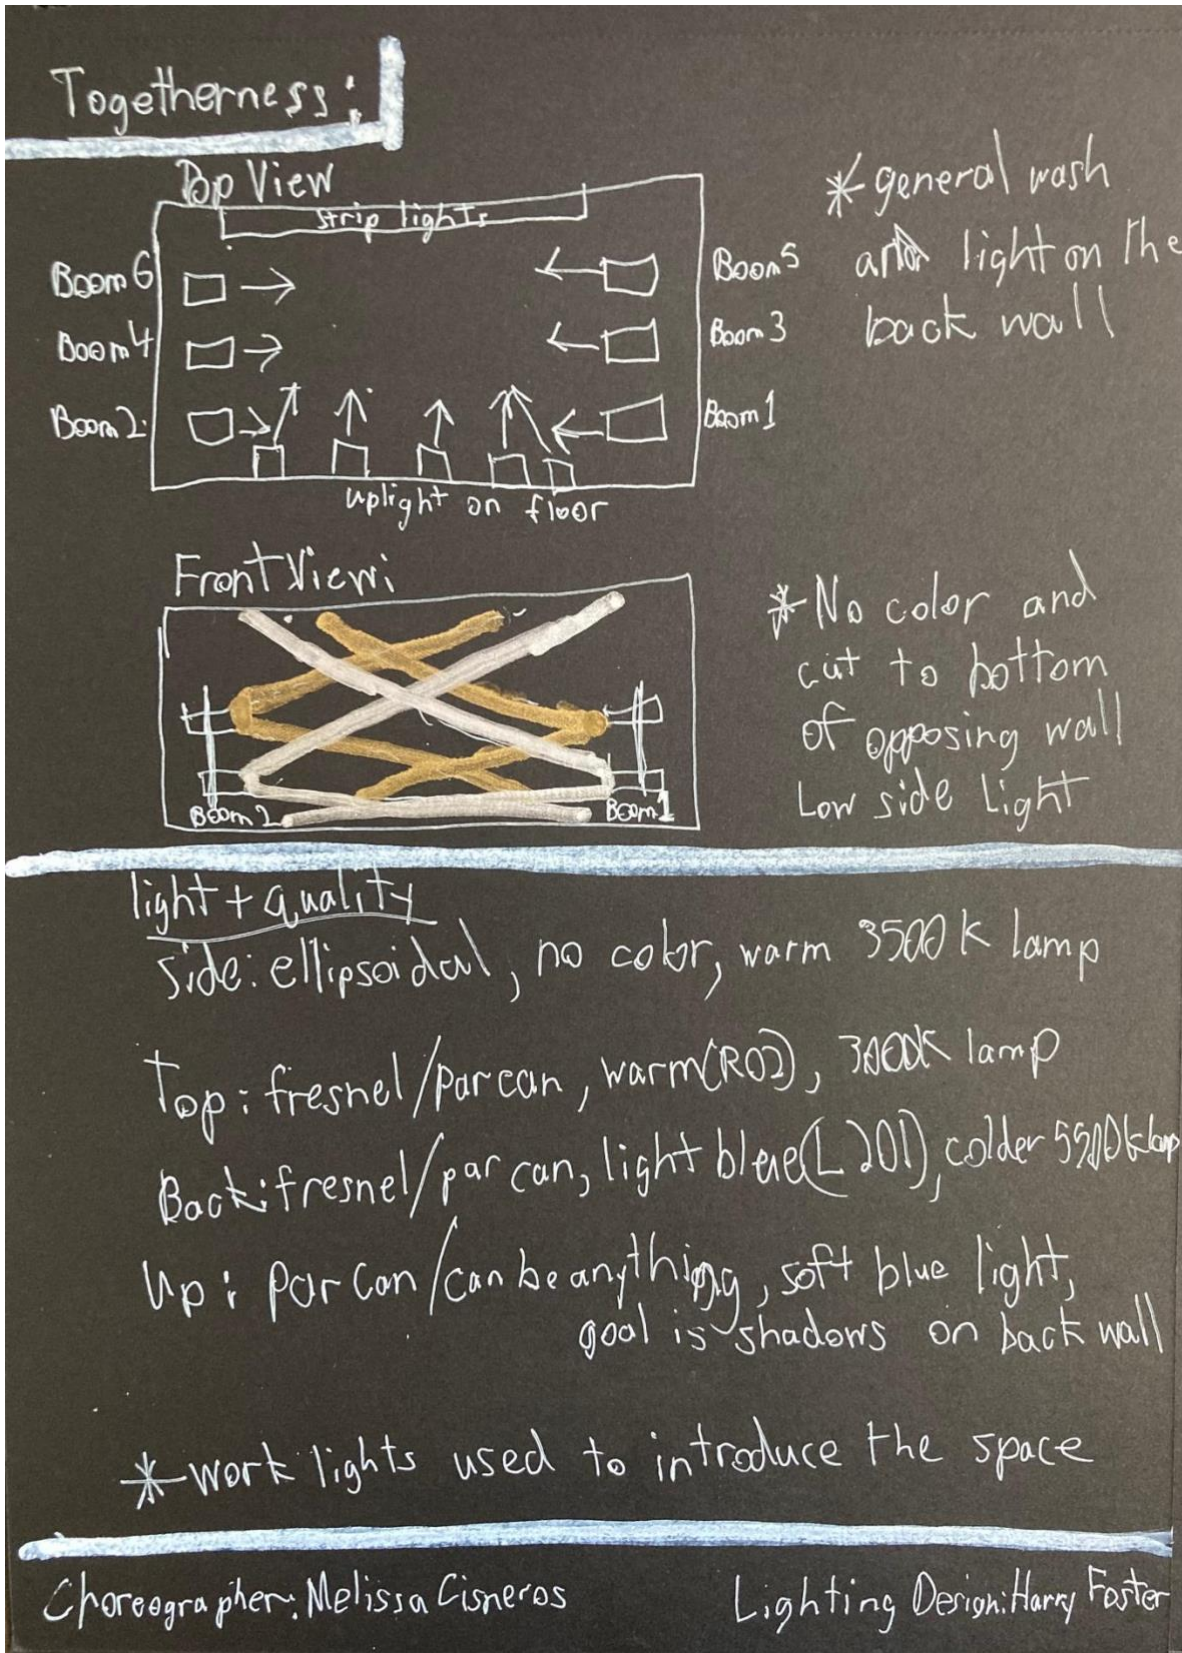 Togetherness:
Top View
strip lights
Boom 6
Boom 5
Boom 4
Boom 3
Boom 2
Boom 1
uplight on floor
* general wash
and light on the
back wall
Front View:
Boom 2
Boom 1
* No color and
cut to bottom
of opposing wall
Low side light
light + quality
side: ellipsoidal, no color, warm 3500 K lamp
Top: fresnel/parcan, warm(R02), 3000K lamp
Back: fresnel/par can, light blue(L201), colder 5500k lamp
Up: par can/can be anything, soft blue light,
goal is shadows on back wall
* work lights used to introduce the space
Choreographer: Melissa Cisneros
Lighting Design: Harry Foster